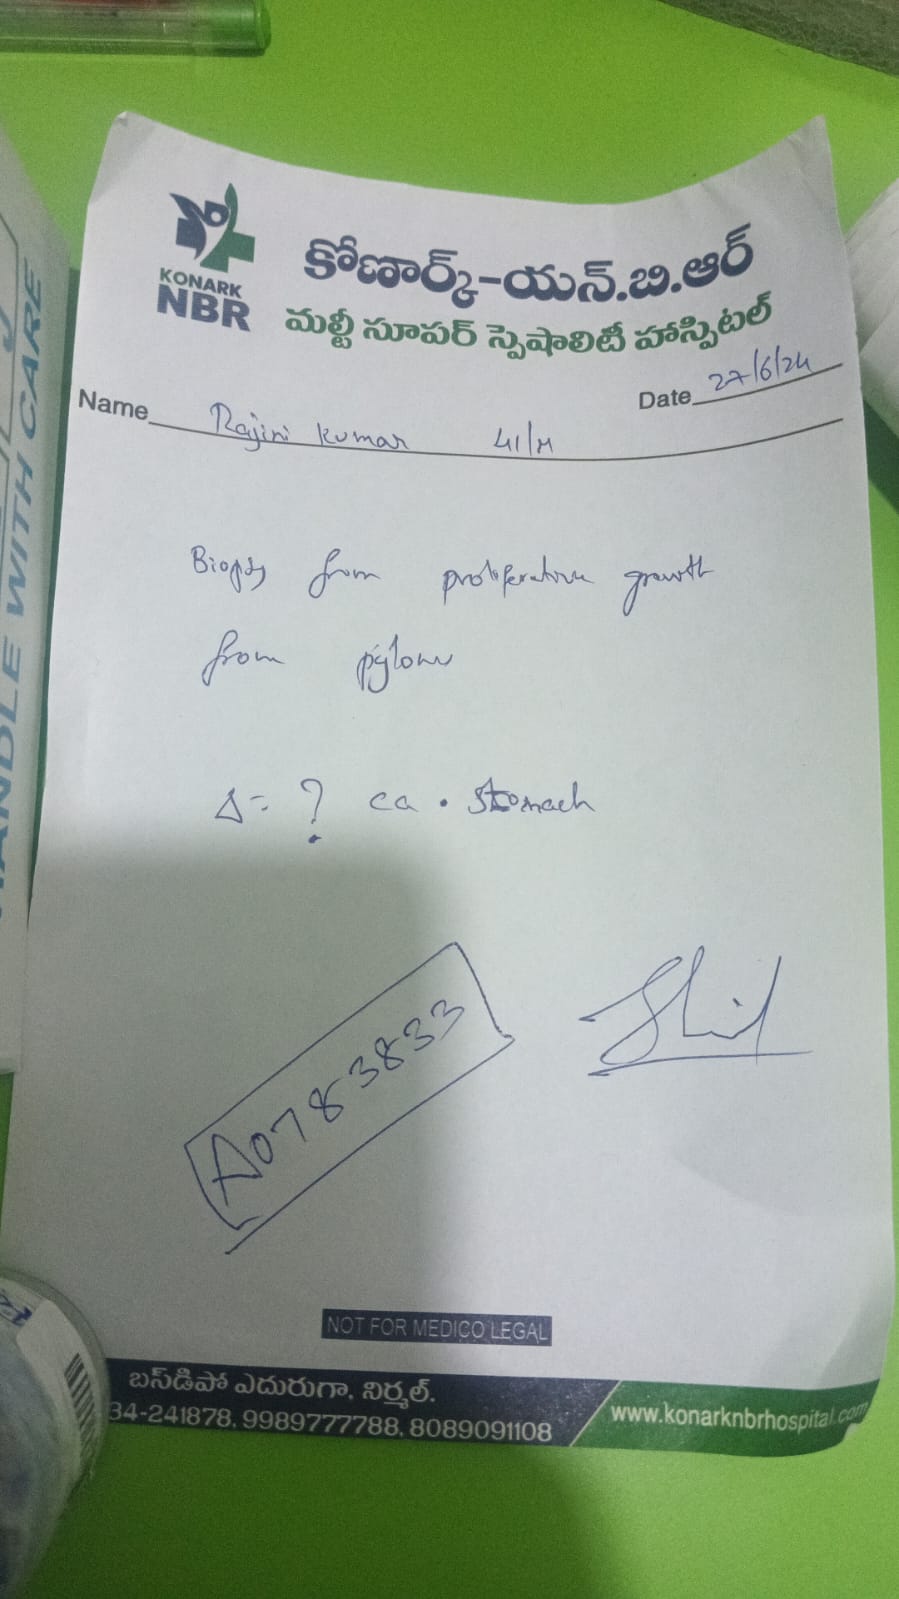 కోణార్క్-యన్.బి.ఆర్
KONARK
NBR
మల్టీ సూపర్ స్పెషాలిటీ హాస్పిటల్
Date 27/6/24
Name Rajini Kumar 41/M
Biopsy from proliferative growth
from pylorus
Δ= ? ca. stomach
A0783833
NOT FOR MEDICO LEGAL
బస్‌డిపో ఎదురుగా, నిర్మల్.
34-241878, 9989777788, 8089091108
www.konarknbrhospital.com
HANDLE WITH CARE